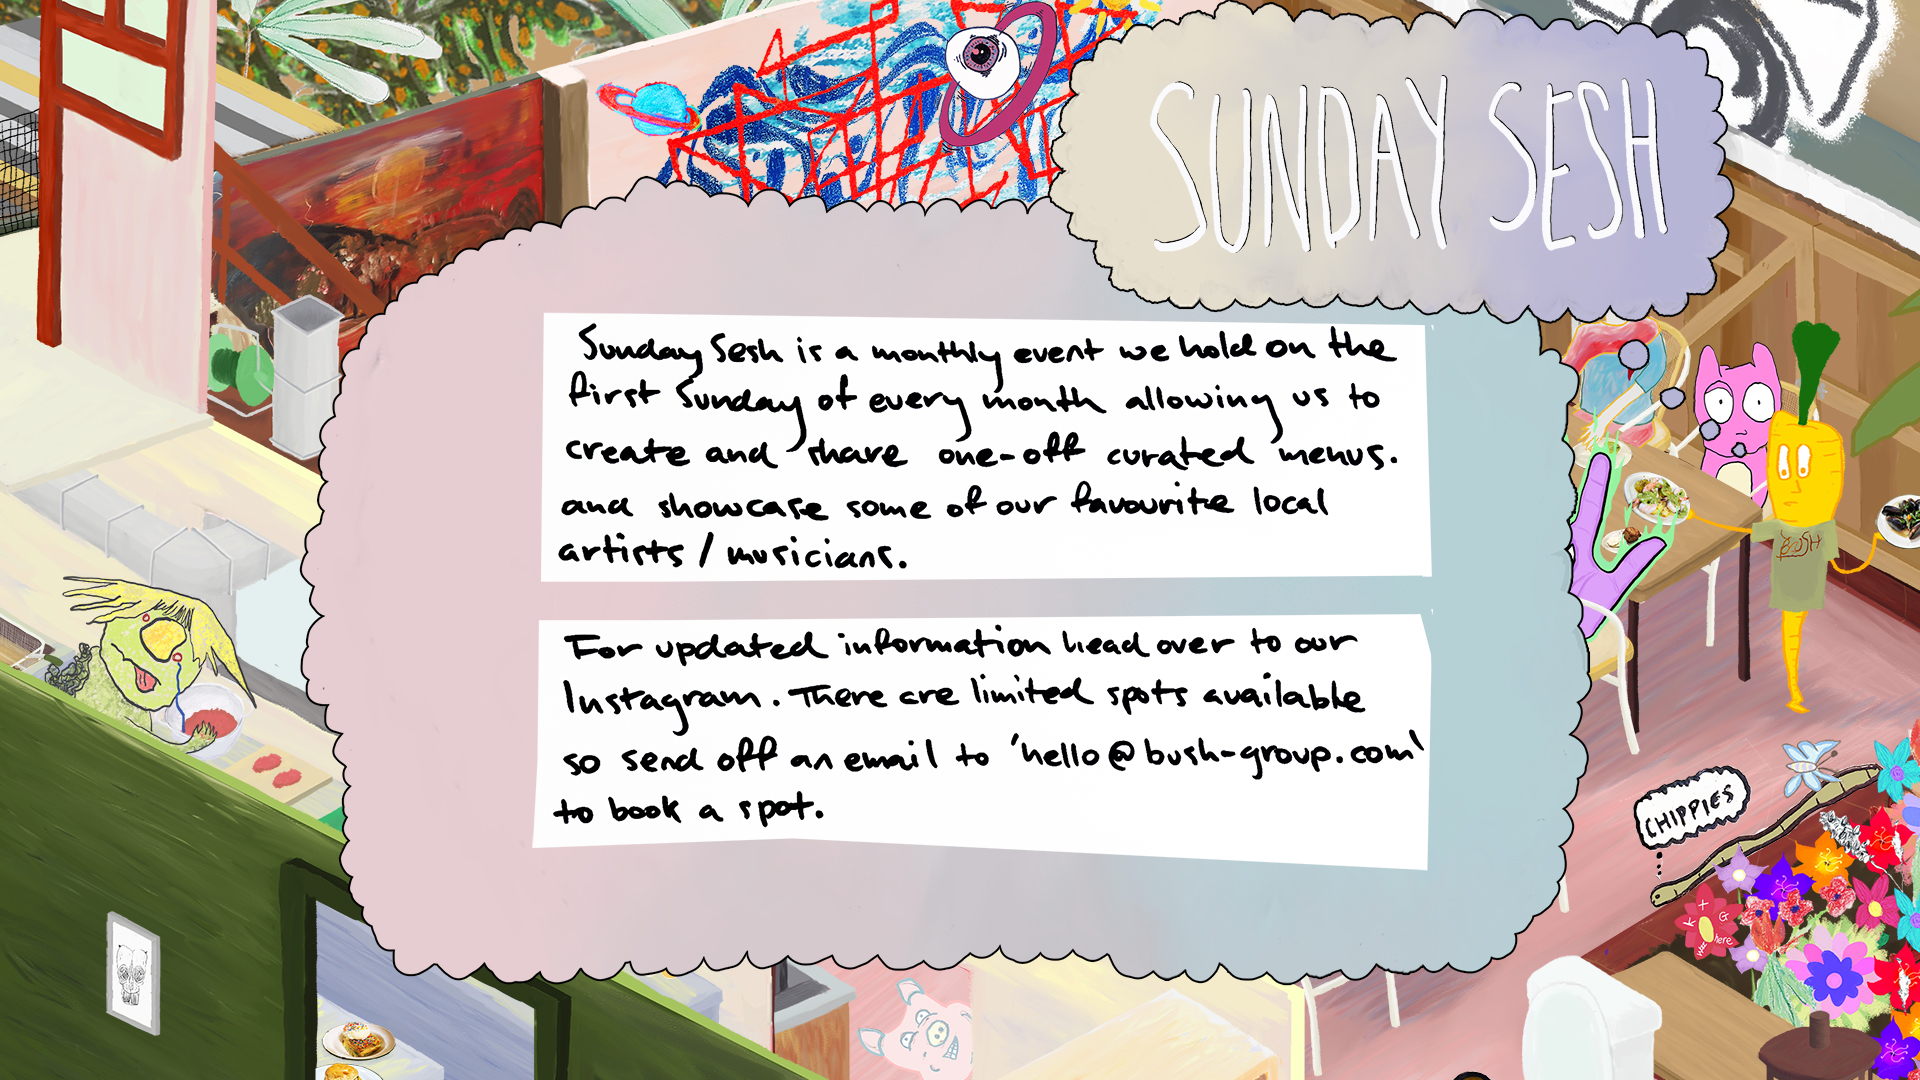 SUNDAY SESH
Sunday Sesh is a monthly event we hold on the
first Sunday of every month allowing us to
create and share one-off curated menus.
and showcase some of our favourite local
artists / musicians.
For updated information head over to our
Instagram. There are limited spots available
so send off an email to 'hello@bush-group.com'
to book a spot.
BUSH
CHIPPIES
K + G
were here